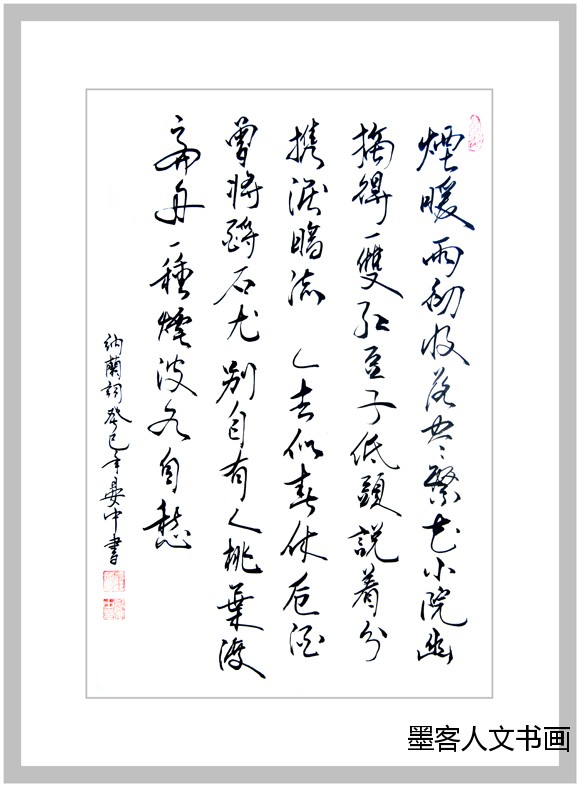 煙暖雨初收落尽繁花小院幽
摘得一雙红豆子低頭説着分
携淚暗流 人去似春休卮酒
曾将酹石尤别自有人桃葉渡
扁舟一種煙波各自愁
納蘭詞癸巳年晏中書
墨客人文书画